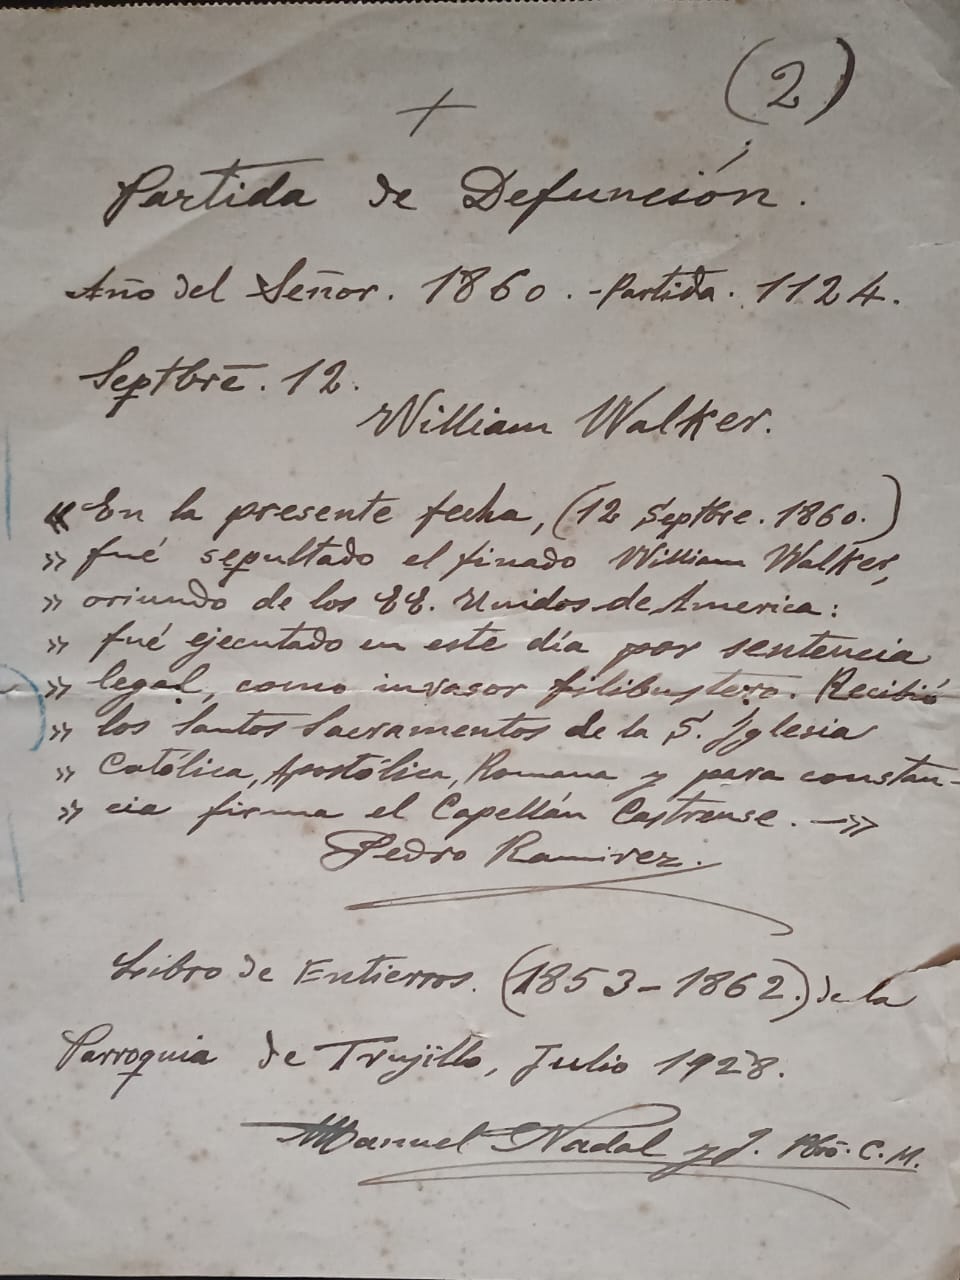 (2)
+
Partida de Defunción.
Año del Señor. 1860. - Partida. 1124.
Septbre. 12.
William Walker.
« En la presente fecha, (12 Septbre. 1860.)
» fué sepultado el finado William Walker,
» oriundo de los EE. Unidos de America:
» fué ejecutado en este día por sentencia
» legal, como invasor filibustero. Recibió
» los Santos Sacramentos de la S. Iglesia
» Católica, Apostólica, Romana y para constan-
» cia firma el Capellán Castrense. -»
Pedro Ramirez.
Libro de Entierros. (1853-1862.) de la
Parroquia de Trujillo, Julio 1928.
Manuel Nadal y J. Pbro. C. M.